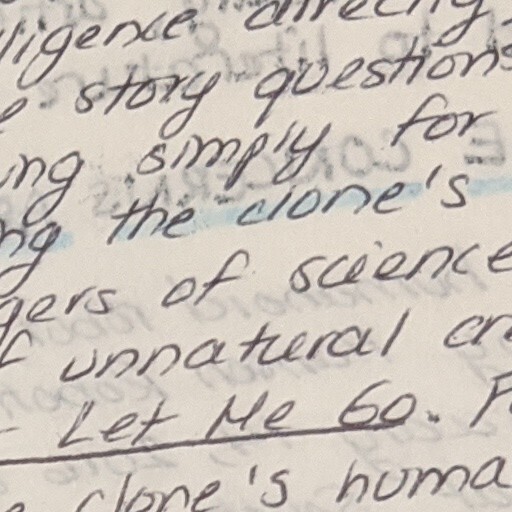 ligence directly
story questions
ing simply for
ng the clone's
gers of science
unnatural
Let Me Go.
clone's huma